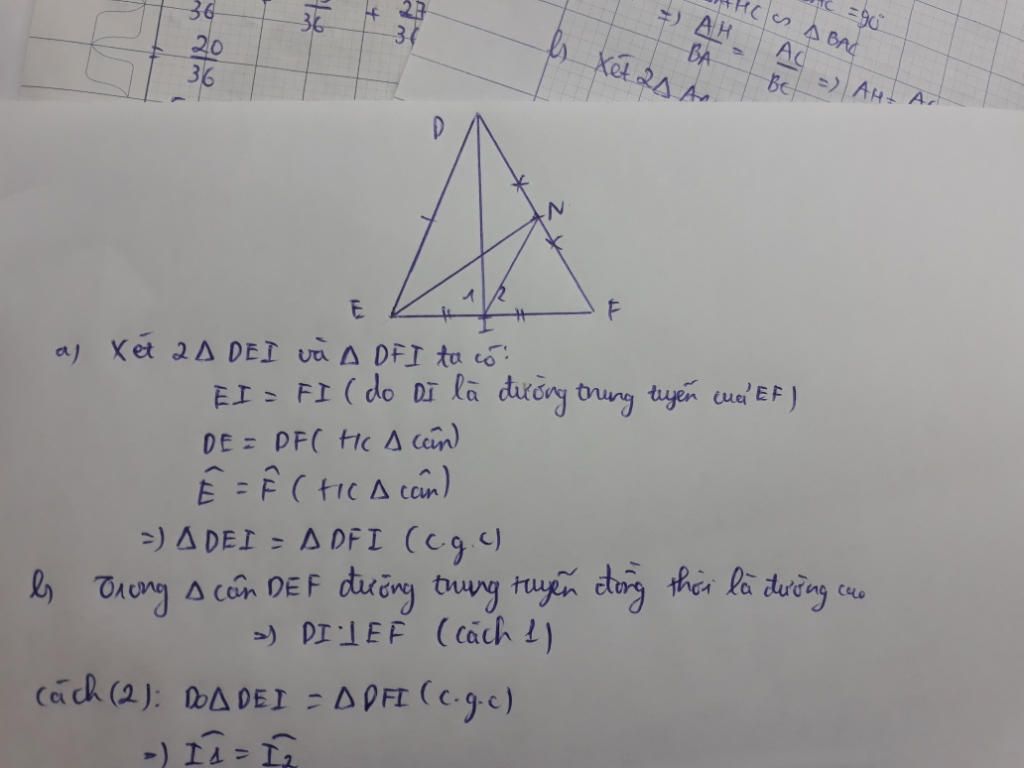 36
36
+ 27
= 20
36
=> AH = AC
BA BC
=> AH = AC
∽ Δ BAC
b) Xét 2Δ
D
N
E
1 2
I
F
a) Xét 2Δ DEI và Δ DFI ta có:
EI = FI ( do DI là đường trung tuyến của EF)
DE = DF ( t/c Δ cân)
Ê = F̂ ( t/c Δ cân)
=) Δ DEI = Δ DFI (c.g.c)
b) Trong Δ cân DEF đường trung tuyến đồng thời là đường cao
=) DI ⊥ EF (cách 1)
Cách (2): Do Δ DEI = Δ DFI (c.g.c)
=) Î1 = Î2